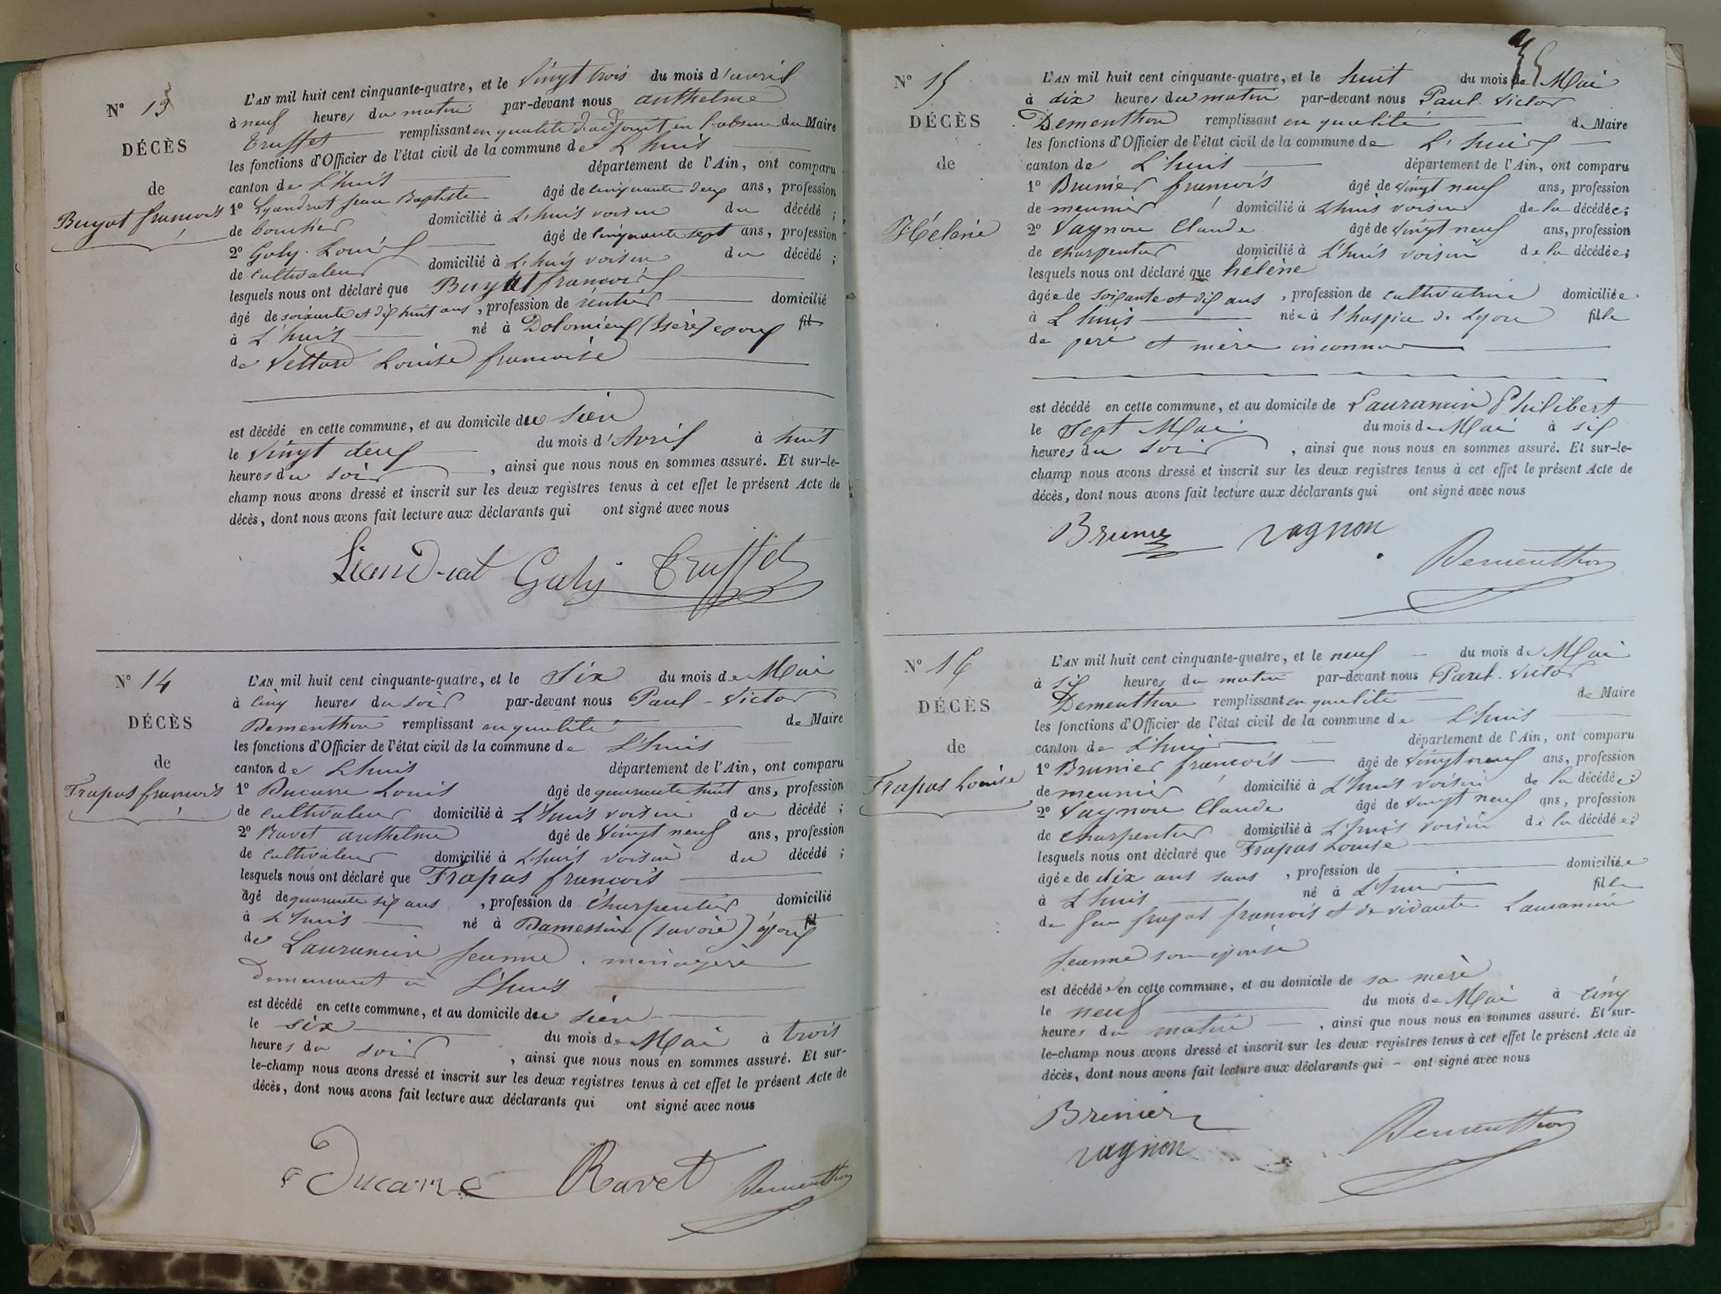 N° 13
DÉCÈS
de
Buyat françois
L'AN mil huit cent cinquante-quatre, et le Vingt trois du mois d'avril
à neuf heures du matin par-devant nous anthelme
Truffet remplissant en qualité d'adjoint en l'absence du Maire
les fonctions d'Officier de l'état civil de la commune de L'huis
canton de L'huis département de l'Ain, ont comparu
1° Lyandrat Jean Baptiste âgé de cinquante deux ans, profession
de boucher domicilié à L'huis voisin du décédé ;
2° Goly Louis âgé de cinquante sept ans, profession
de cultivateur domicilié à L'huis voisin du décédé ;
lesquels nous ont déclaré que Buyat françois
âgé de soixante et dix huit ans, profession de rentier domicilié
à L'huis né à Dolomieu (Isère) époux fil
de Vettard Louise françoise
est décédé en cette commune, et au domicile du sien
le vingt deux du mois d'Avril à huit
heures du soir, ainsi que nous nous en sommes assuré. Et sur-le-
champ nous avons dressé et inscrit sur les deux registres tenus à cet effet le présent Acte de
décès, dont nous avons fait lecture aux déclarants qui ont signé avec nous
Liandrat Goly Truffet
N° 14
DÉCÈS
de
Frapas françois
L'AN mil huit cent cinquante-quatre, et le Six du mois de Mai
à cinq heures du soir par-devant nous Paul-Victor
Dementhon remplissant en qualité de Maire
les fonctions d'Officier de l'état civil de la commune de L'huis
canton de Lhuis département de l'Ain, ont comparu
1° Ducarre Louis âgé de quarante huit ans, profession
de cultivateur domicilié à L'huis voisin du décédé ;
2° Ravet anthelme âgé de vingt neuf ans, profession
de cultivateur domicilié à Lhuis voisin du décédé ;
lesquels nous ont déclaré que Frapas françois
âgé de quarante six ans, profession de charpentier domicilié
à L'huis né à (Savoie) époux fil
de Lauranein Jeanne ménagère
demeurant à L'huis
est décédé en cette commune, et au domicile du sien
le six du mois de Mai à trois
heures du soir, ainsi que nous nous en sommes assuré. Et sur-
le-champ nous avons dressé et inscrit sur les deux registres tenus à cet effet le présent Acte de
décès, dont nous avons fait lecture aux déclarants qui ont signé avec nous
Ducarre Ravet Dementhon
N° 15
DÉCÈS
de
Hélène
L'AN mil huit cent cinquante-quatre, et le huit du mois de Mai
à dix heures du matin par-devant nous Paul-Victor
Dementhon remplissant en qualité de Maire
les fonctions d'Officier de l'état civil de la commune de L'huis
canton de L'huis département de l'Ain, ont comparu
1° Brunier françois âgé de vingt neuf ans, profession
de meunier domicilié à Lhuis voisin de la décédée;
2° Vagnon Claude âgé de vingt neuf ans, profession
de charpentier domicilié à L'huis voisin de la décédée;
lesquels nous ont déclaré que hélène
âgée de soixante et dix ans, profession de cultivatrice domiciliée
à Lhuis née à l'hospice de Lyon fille
de père et mère inconnus
est décédé en cette commune, et au domicile de Lauranein Philibert
le Sept Mai du mois de Mai à six
heures du soir, ainsi que nous nous en sommes assuré. Et sur-le-
champ nous avons dressé et inscrit sur les deux registres tenus à cet effet le présent Acte de
décès, dont nous avons fait lecture aux déclarants qui ont signé avec nous
Brunier vagnon
Dementhon
N° 16
DÉCÈS
de
Frapas Louise
L'AN mil huit cent cinquante-quatre, et le neuf du mois de Mai
à six heures du matin par-devant nous Paul-Victor
Dementhon remplissant en qualité de Maire
les fonctions d'Officier de l'état civil de la commune de Lhuis
canton de L'huis département de l'Ain, ont comparu
1° Brunier françois âgé de vingt neuf ans, profession
de meunier domicilié à L'huis voisin de la décédée;
2° Vagnon Claude âgé de vingt neuf ans, profession
de charpentier domicilié à L'huis voisin de la décédée;
lesquels nous ont déclaré que Frapas Louise
âgée de dix ans sans, profession de domiciliée
à Lhuis né à L'huis fille
de feu frapas françois et de vivante Lauranein
Jeanne son épouse
est décédée en cette commune, et au domicile de sa mère
le neuf du mois de Mai à cinq
heures du matin, ainsi que nous nous en sommes assuré. Et sur-
le-champ nous avons dressé et inscrit sur les deux registres tenus à cet effet le présent Acte de
décès, dont nous avons fait lecture aux déclarants qui - ont signé avec nous
Brunier
vagnon Dementhon